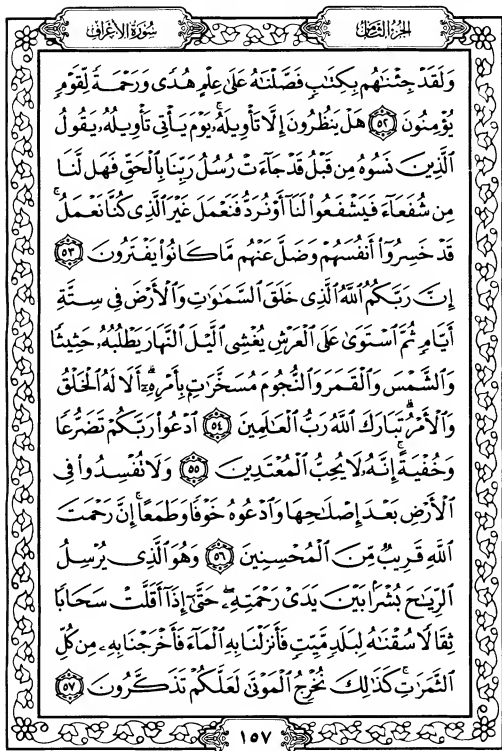 سُورَةُ الأَعْرَافِ
الجُزْءُ الثَّامِنُ
وَلَقَدْ جِئْنَٰهُم بِكِتَٰبٍ فَصَّلْنَٰهُ عَلَىٰ عِلْمٍ هُدًى وَرَحْمَةً لِّقَوْمٍ
يُؤْمِنُونَ ٥٢ هَلْ يَنظُرُونَ إِلَّا تَأْوِيلَهُۥ ۚ يَوْمَ يَأْتِى تَأْوِيلُهُۥ يَقُولُ
ٱلَّذِينَ نَسُوهُ مِن قَبْلُ قَدْ جَآءَتْ رُسُلُ رَبِّنَا بِٱلْحَقِّ فَهَل لَّنَا
مِن شُفَعَآءَ فَيَشْفَعُوا۟ لَنَآ أَوْ نُرَدُّ فَنَعْمَلَ غَيْرَ ٱلَّذِى كُنَّا نَعْمَلُ ۚ
قَدْ خَسِرُوٓا۟ أَنفُسَهُمْ وَضَلَّ عَنْهُم مَّا كَانُوا۟ يَفْتَرُونَ ٥٣
إِنَّ رَبَّكُمُ ٱللَّهُ ٱلَّذِى خَلَقَ ٱلسَّمَٰوَٰتِ وَٱلْأَرْضَ فِى سِتَّةِ
أَيَّامٍ ثُمَّ ٱسْتَوَىٰ عَلَى ٱلْعَرْشِ يُغْشِى ٱلَّيْلَ ٱلنَّهَارَ يَطْلُبُهُۥ حَثِيثًا
وَٱلشَّمْسَ وَٱلْقَمَرَ وَٱلنُّجُومَ مُسَخَّرَٰتٍۭ بِأَمْرِهِۦٓ ۗ أَلَا لَهُ ٱلْخَلْقُ
وَٱلْأَمْرُ ۗ تَبَارَكَ ٱللَّهُ رَبُّ ٱلْعَٰلَمِينَ ٥٤ ٱدْعُوا۟ رَبَّكُمْ تَضَرُّعًا
وَخُفْيَةً ۚ إِنَّهُۥ لَا يُحِبُّ ٱلْمُعْتَدِينَ ٥٥ وَلَا تُفْسِدُوا۟ فِى
ٱلْأَرْضِ بَعْدَ إِصْلَٰحِهَا وَٱدْعُوهُ خَوْفًا وَطَمَعًا ۚ إِنَّ رَحْمَتَ
ٱللَّهِ قَرِيبٌ مِّنَ ٱلْمُحْسِنِينَ ٥٦ وَهُوَ ٱلَّذِى يُرْسِلُ
ٱلرِّيَٰحَ بُشْرًۢا بَيْنَ يَدَىْ رَحْمَتِهِۦ ۖ حَتَّىٰٓ إِذَآ أَقَلَّتْ سَحَابًا
ثِقَالًا سُقْنَٰهُ لِبَلَدٍ مَّيِّتٍ فَأَنزَلْنَا بِهِ ٱلْمَآءَ فَأَخْرَجْنَا بِهِۦ مِن كُلِّ
ٱلثَّمَرَٰتِ ۚ كَذَٰلِكَ نُخْرِجُ ٱلْمَوْتَىٰ لَعَلَّكُمْ تَذَكَّرُونَ ٥٧
١٥٧